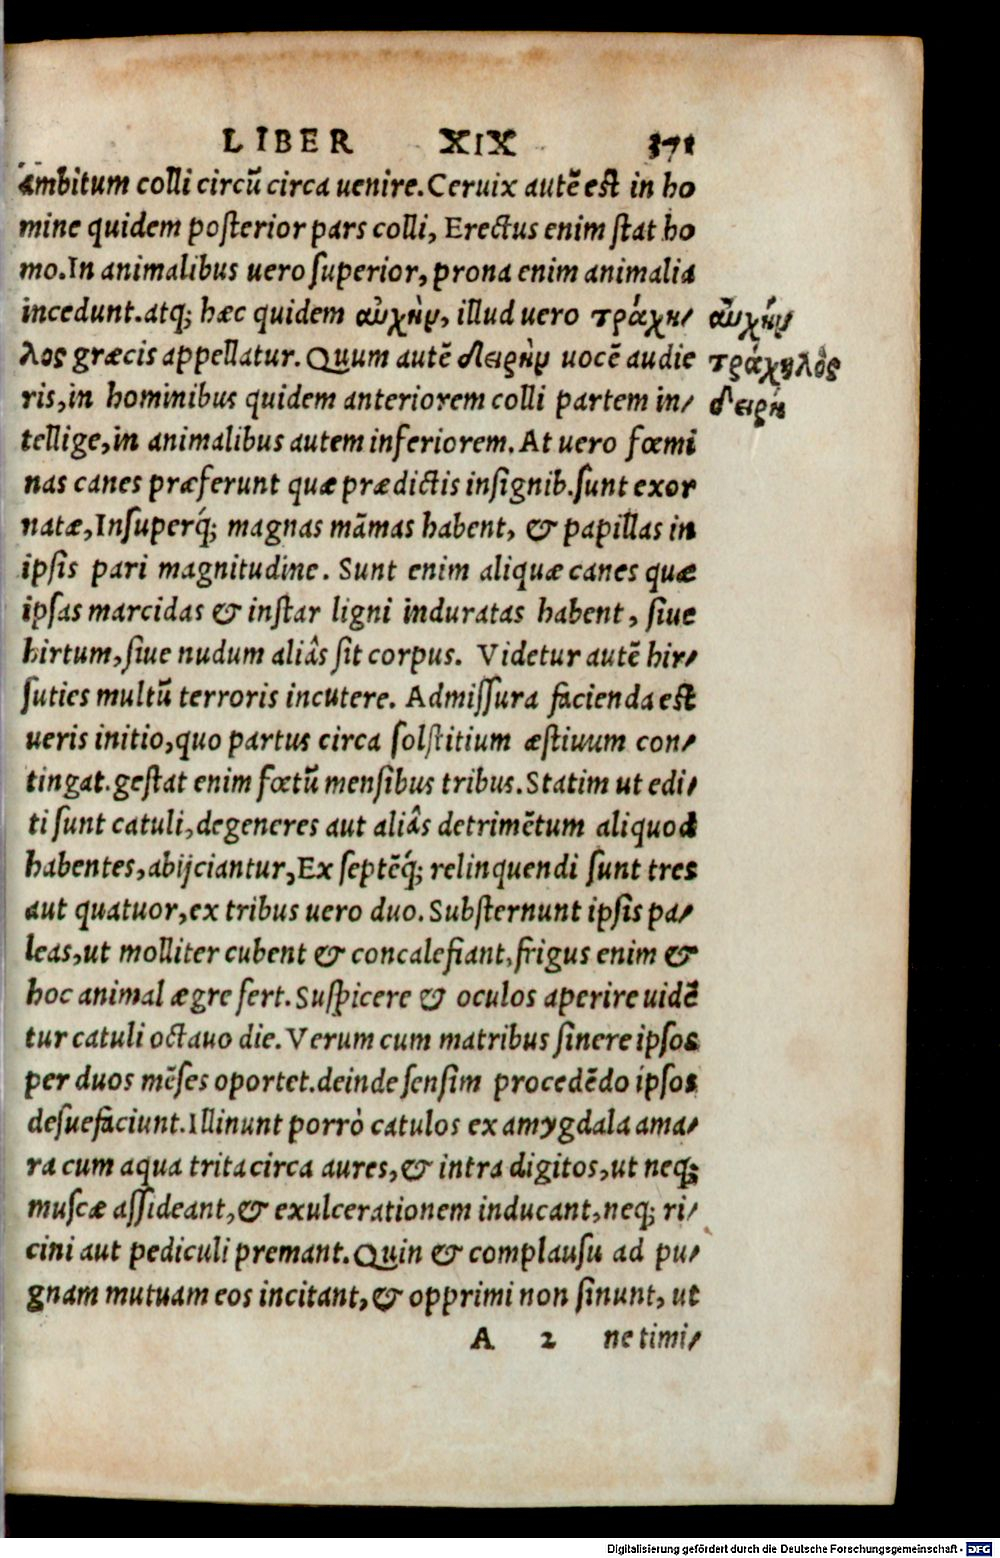 LIBER XIX 371
ambitum colli circũ circa uenire. Ceruix autẽ est in ho
mine quidem posterior pars colli, Erectus enim stat ho
mo. In animalibus uero superior, prona enim animalia
incedunt. atq; hæc quidem αὐχὴν, illud uero τράχη/
λος græcis appellatur. Quum autẽ δειρὴν uocẽ audie
ris, in hominibus quidem anteriorem colli partem in/
tellige, in animalibus autem inferiorem. At uero fœmi
nas canes præferunt quæ prædictis insignib. sunt exor
natæ, Insuperq́; magnas mãmas habent, & papillas in
ipsis pari magnitudine. Sunt enim aliquæ canes quæ
ipsas marcidas & instar ligni induratas habent, siue
hirtum, siue nudum aliâs sit corpus. Videtur autẽ hir/
suties multũ terroris incutere. Admissura facienda est
ueris initio, quo partus circa solstitium æstiuum con/
tingat. gestat enim fœtũ mensibus tribus. Statim ut edi/
ti sunt catuli, degeneres aut aliâs detrimẽtum aliquod
habentes, abijciantur, Ex septẽq́; relinquendi sunt tres
aut quatuor, ex tribus uero duo. Substernunt ipsis pa/
leas, ut molliter cubent & concalefiant, frigus enim &
hoc animal ægre fert. Suspicere & oculos aperire uidẽ
tur catuli octauo die. Verum cum matribus sinere ipsos
per duos mẽses oportet. deinde sensim procedẽdo ipsos
desuefaciunt. Illinunt porrò catulos ex amygdala ama/
ra cum aqua trita circa aures, & intra digitos, ut neq;
muscæ assideant, & exulcerationem inducant, neq; ri/
cini aut pediculi premant. Quin & complausu ad pu/
gnam mutuam eos incitant, & opprimi non sinunt, ut
A 2 ne timi/
αὐχήν
τράχηλος
δειρή
Digitalisierung gefördert durch die Deutsche Forschungsgemeinschaft - DFG